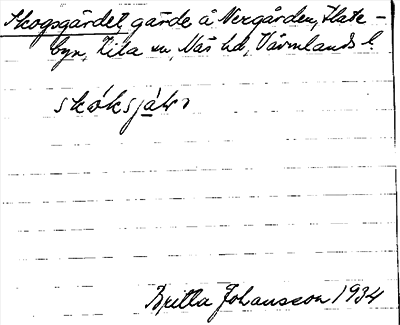 Skogsgärdet, gärde å Nergården, Slate-
byn, Kila sn, Näs hd, Värmlands l.
skóksjáḷɩ
Britta Johansson 1934